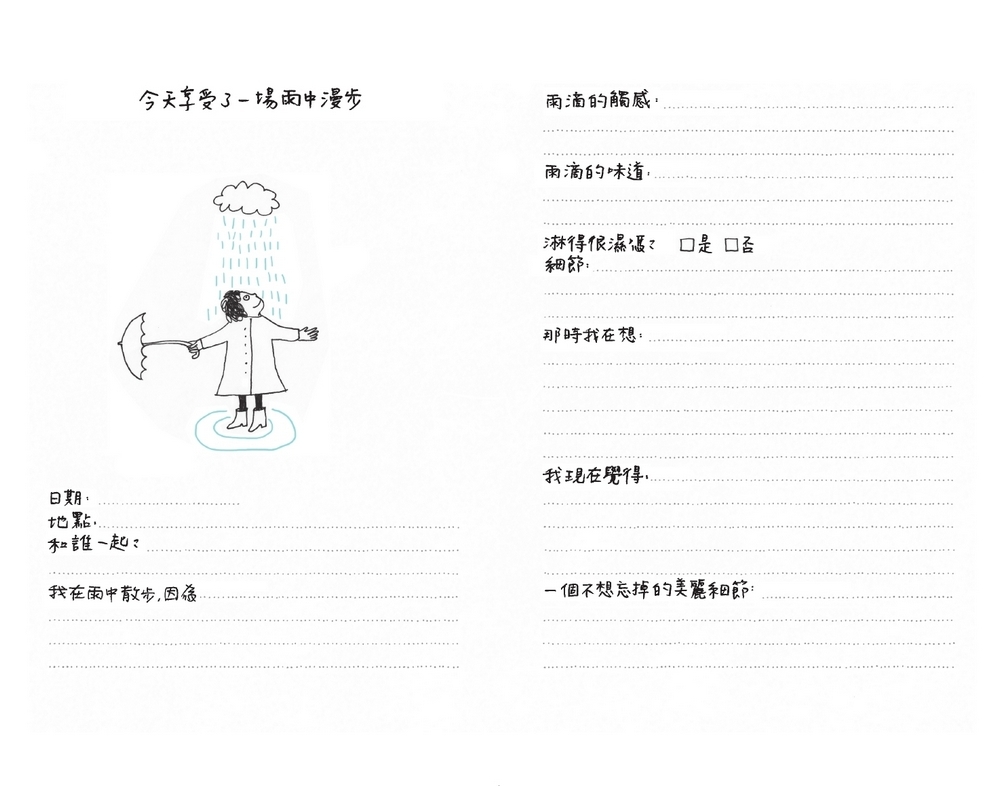 今天享受了一場雨中漫步
日期:
地點:
和誰一起?
我在雨中散步,因為
雨滴的觸感:
雨滴的味道:
淋得很濕嗎? □是 □否
細節:
那時我在想:
我現在覺得:
一個不想忘掉的美麗細節: